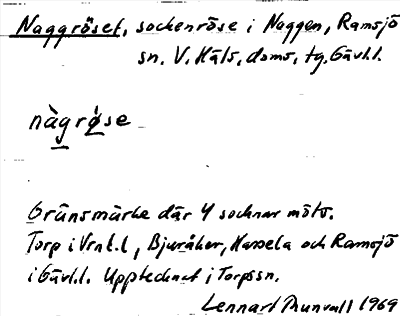 Naggröset, sockenröse i Naggen, Ramsjö
sn. V. Häls. doms. tg. Gävl.l.
nàgrǿse
Gränsmärke där 4 socknar möts.
Torp i Vrnl.l, Bjuråker, Hassela och Ramsjö
i Gävl.l. Upptecknat i Torpssn.
Lennart Thunvall 1969